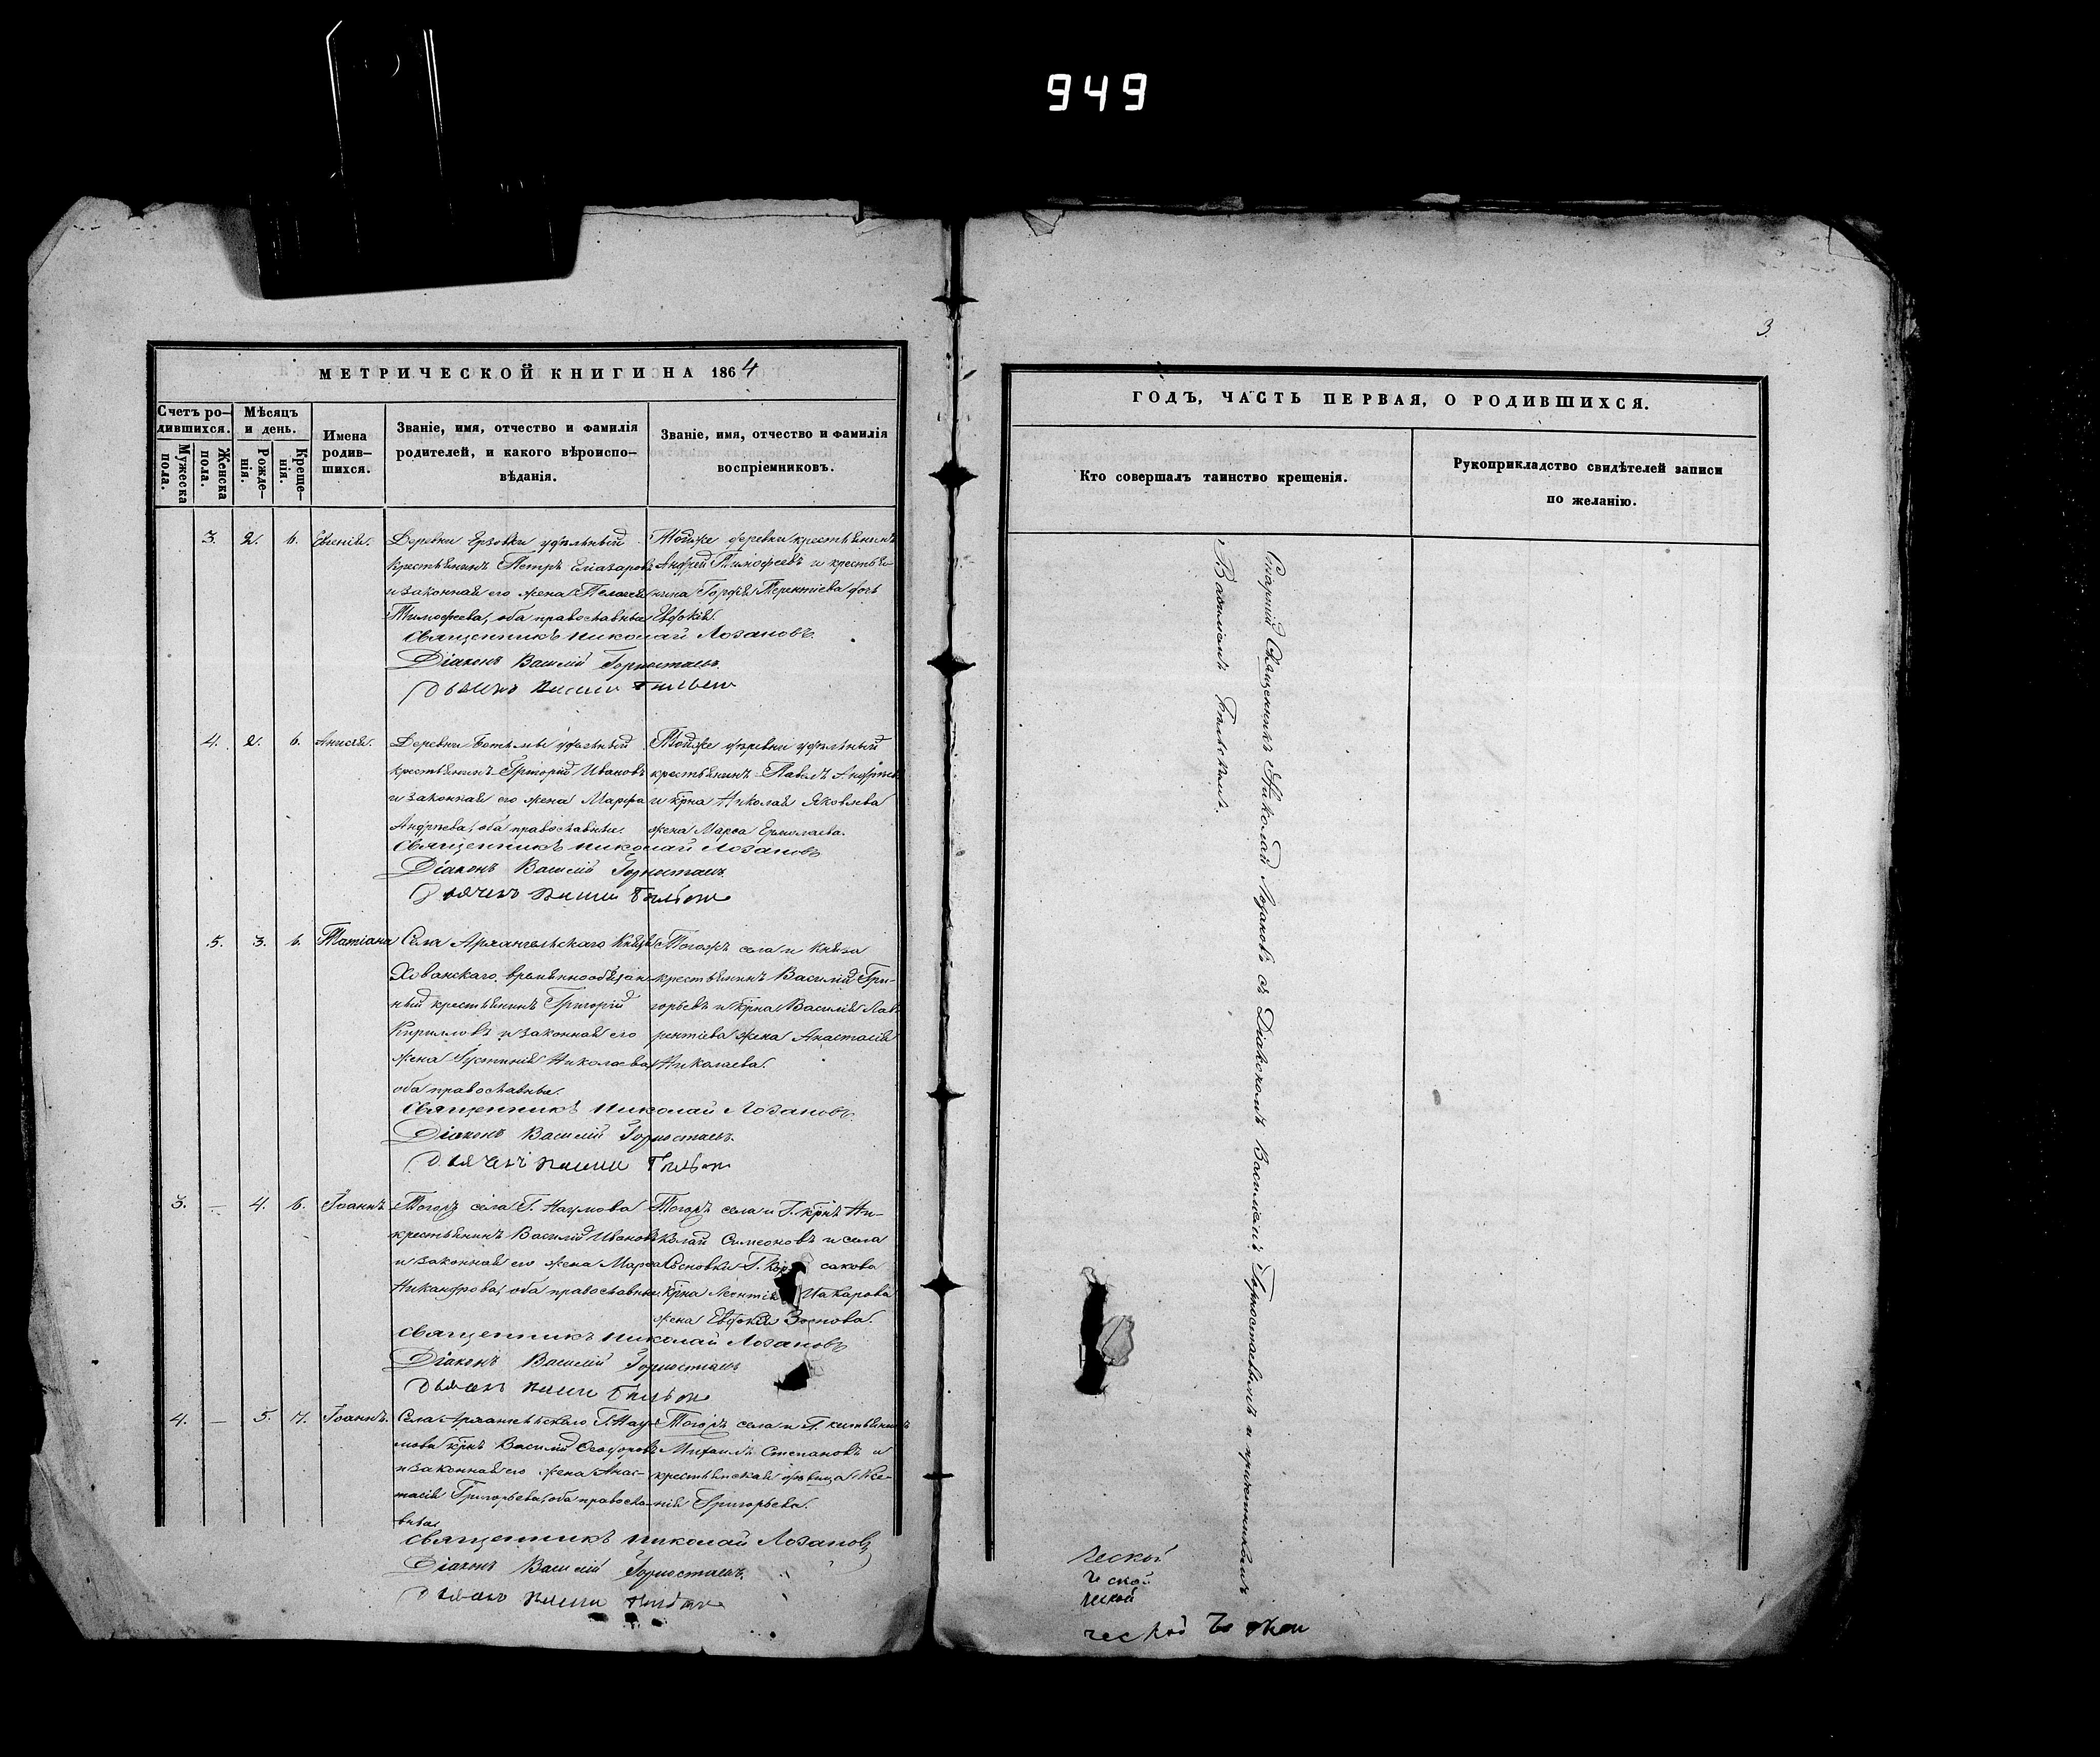 949
3
МЕТРИЧЕСКОЙ КНИГИ НА 1864
Счетъ ро-
дившихся.
Мужеска
пола.
Женска
пола.
Мѣсяцъ
и день.
Рожде-
нія.
Креще-
нія.
Имена
родив-
шихся.
Званіе, имя, отчество и фамилія
родителей, и какого вѣроиспо-
вѣданія.
Званіе, имя, отчество и фамилія
воспріемниковъ.
3. 2. 6. Евгенія.
Деревни Ерзовки удѣльный
крестьянинъ Петръ Елазаровъ
и законная его жена Пелагея
Тимофеева, оба православные
Тойже деревни крестьянинъ
Андрей Тимофеевъ и крестья-
нина Гордѣя Терентіева дочь
Евдокія.
Священникъ Николай Лозановъ.
Діаконъ Василій Горностаевъ.
4. 2. 6. Анисія.
Деревни Ботьмы удѣльный
крестьянинъ Григорій Ивановъ
и законная его жена Марфа
Андреева, оба православные.
Тойже деревни удѣльный
крестьянинъ Павелъ Андреевъ
и крна Николая Яковлева
жена Марѳа Ермолаева.
Священникъ Николай Лозановъ
Діаконъ Василій Горностаевъ.
5. 3. 6. Татіана
Села Архангельскаго Князя
Хованскаго, временнообязан-
ный крестьянинъ Григорій
Кирилловъ и законная его
жена Іустинія Николаева,
оба православные.
Тогожъ села и Князя
крестьянинъ Василій Гри-
горьевъ и крна Василія Лав-
рентіева жена Анастасія
Николаева.
Священникъ Николай Лозановъ.
Діаконъ Василій Горностаевъ.
3. — 4. 6. Іоаннъ.
Тогожъ села Г. Наумова
крестьянинъ Василій Ивановъ
и законная его жена Марѳа
Никанорова, оба православные.
Тогожъ села и Г. крнъ Ни-
колай Симеоновъ и села
Сосновки Г. сакова
крна Леонтія Макарова
жена Евдокія Зотова.
Священникъ Николай Лозановъ
Діаконъ Василій Горностаевъ
4. — 5. 7. Іоаннъ.
Села Архангельскаго Г. Нау-
мова крнъ Василій Ѳеодоровъ
и законная его жена Анас-
тасія Григорьева, оба правосла-
вные
Тогожъ села и Г. крестьянинъ
Михаилъ Степановъ и
крестьянская дѣвица Ксе-
нія Григорьева.
Священникъ Николай Лозановъ
Діаконъ Василій Горностаевъ.
ГОДЪ, ЧАСТЬ ПЕРВАЯ, О РОДИВШИХСЯ.
Кто совершалъ таинство крещенія.
Рукоприкладство свидѣтелей записи
по желанію.
Старшій Священникъ Николай Лозановъ съ Діакономъ Василіемъ Горностаевымъ и причетникомъ
Василіемъ
ческой
ческой
ческой
ческой